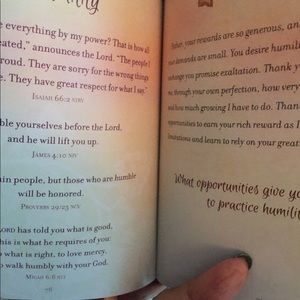 e everything by my power? That is how all
eated," announces the Lord. "The people I
proud. They are sorry for the wrong things
e. They have great respect for what I say."
ISAIAH 66:2 NIRV
ble yourselves before the Lord,
and he will lift you up.
JAMES 4:10 NIV
in people, but those who are humble
will be honored.
PROVERBS 29:23 NCV
LORD has told you what is good.
his is what he requires of you
o what is right, to love mercy,
o walk humbly with your God.
MICAH 6:8
Father, your rewards are so generous, an
our demands are small. You desire humili
xchange you promise exaltation. Thank y
me, through your own perfection, how very
nd how much growing I have to do. Than
opportunities to earn your rich reward as I
imitations and learn to rely on your great
What opportunities give you
to practice humilit